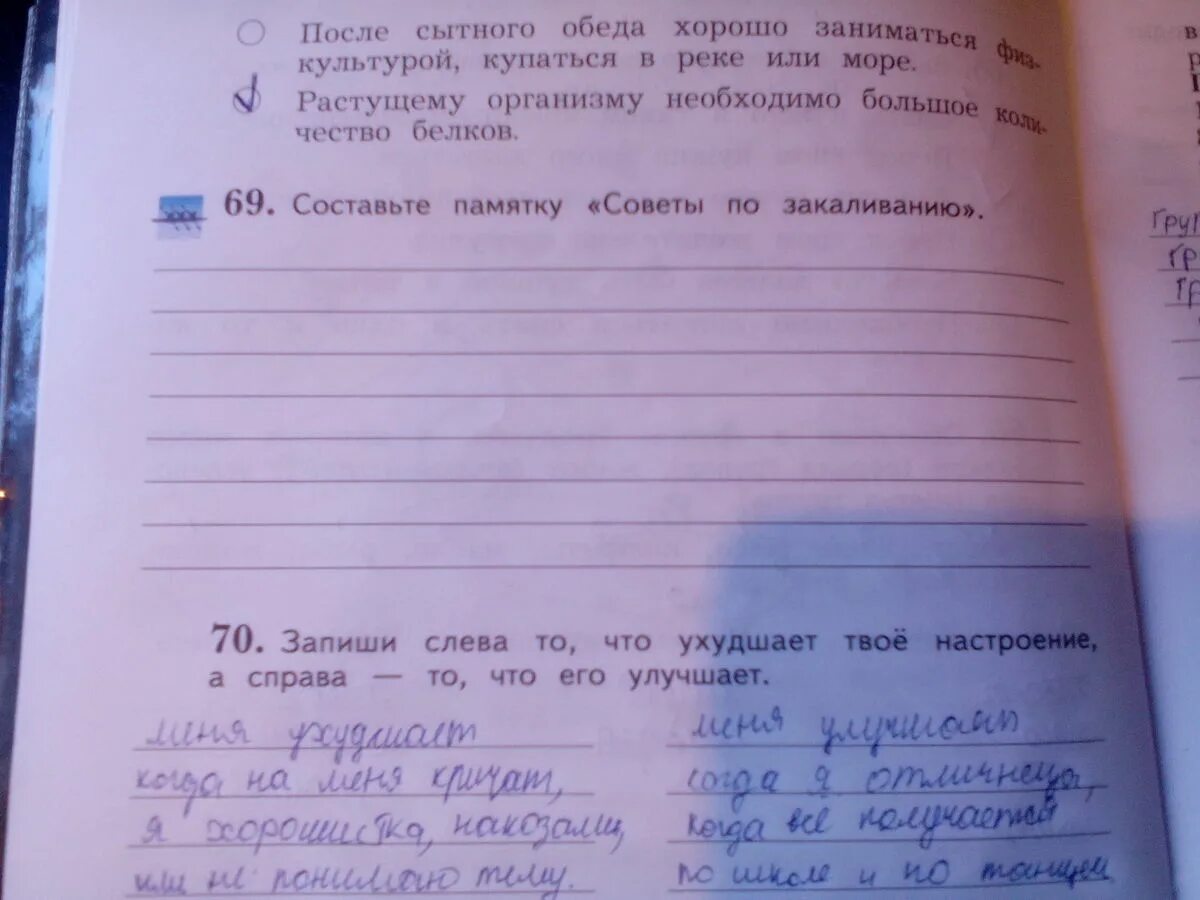 После сытного обеда хорошо заниматься физ-
культурой, купаться в реке или море.
Растущему организму необходимо большое коли-
чество белков.
69. Составьте памятку «Советы по закаливанию».
70. Запиши слева то, что ухудшает твоё настроение,
а справа — то, что его улучшает.
меня ухудшает
когда на меня кричат,
я хорошистка, наказали,
или не понимаю тему.
меня улучшает
когда я отличница,
когда всё получается
по школе и по танцам